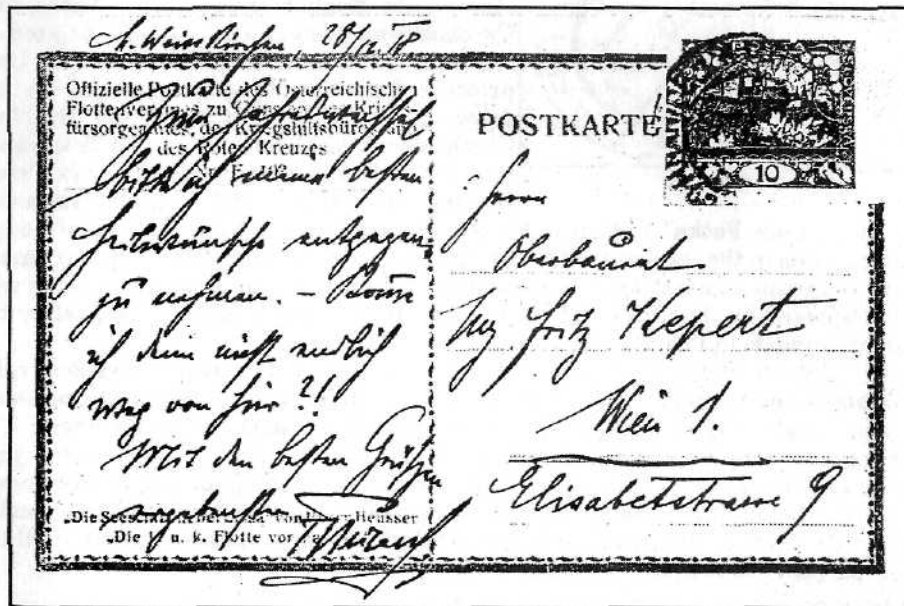 M. Weisskirchen, 28/12.18
Offizielle Postkarte des Österreichischen
Flottenvereines zu Gunsten des Kriegs-
fürsorgeamtes, des Kriegshilfsbüros und
des Roten Kreuzes
Zum Jahreswechsel
bitte ich meine besten
Heilwünsche entgegen
zu nehmen. – Komme
ich denn nicht endlich
weg von hier?!
Mit den besten Grüßen
ergebenster
„Die von Heusser
„Die k. u. k. Flotte vor
POSTKARTE
10
Herrn
Oberbaurat
Ing Fritz Kepert
Wien 1.
Elisabetstrasse 9